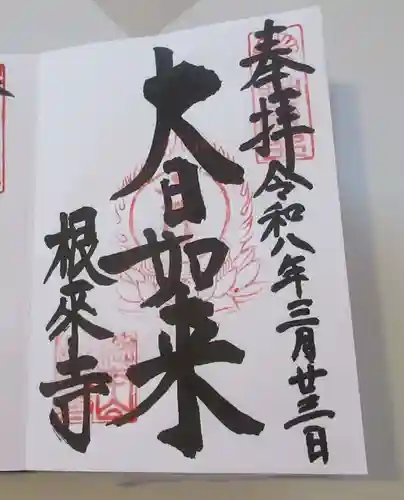 奉拝 令和八年三月廿三日
大日如来
根来寺